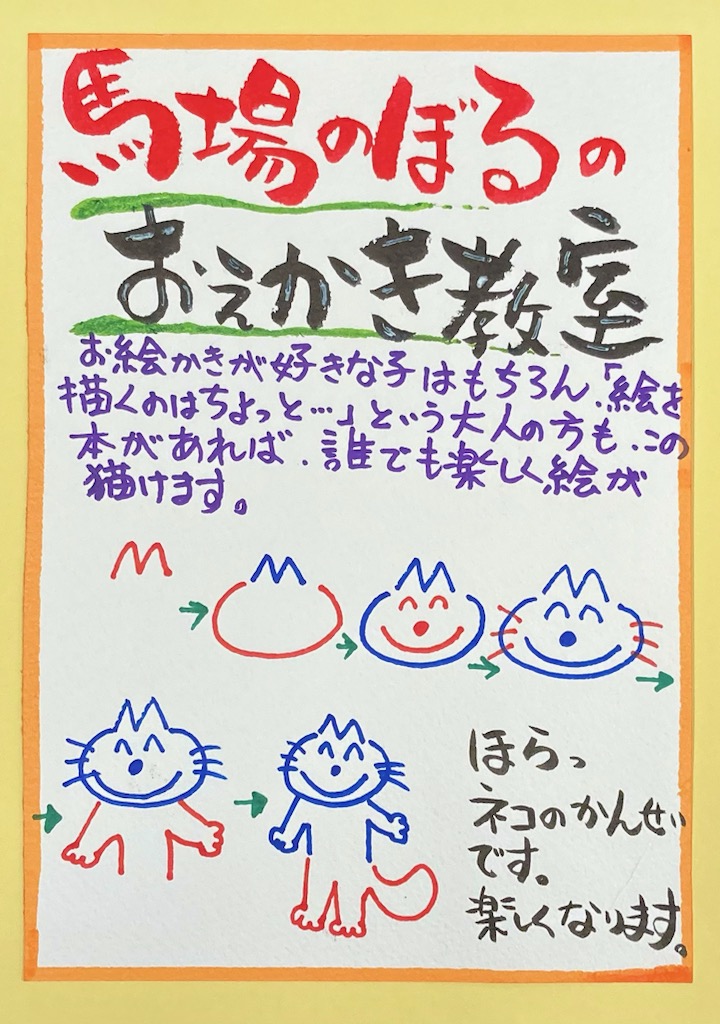 馬場のぼるの
おえかき教室
お絵かきが好きな子はもちろん、「絵を
描くのはちょっと…」という大人の方も、この
本があれば、誰でも楽しく絵が
猫けます。
ほらっ
ネコのかんせい
です。
楽しくなります。